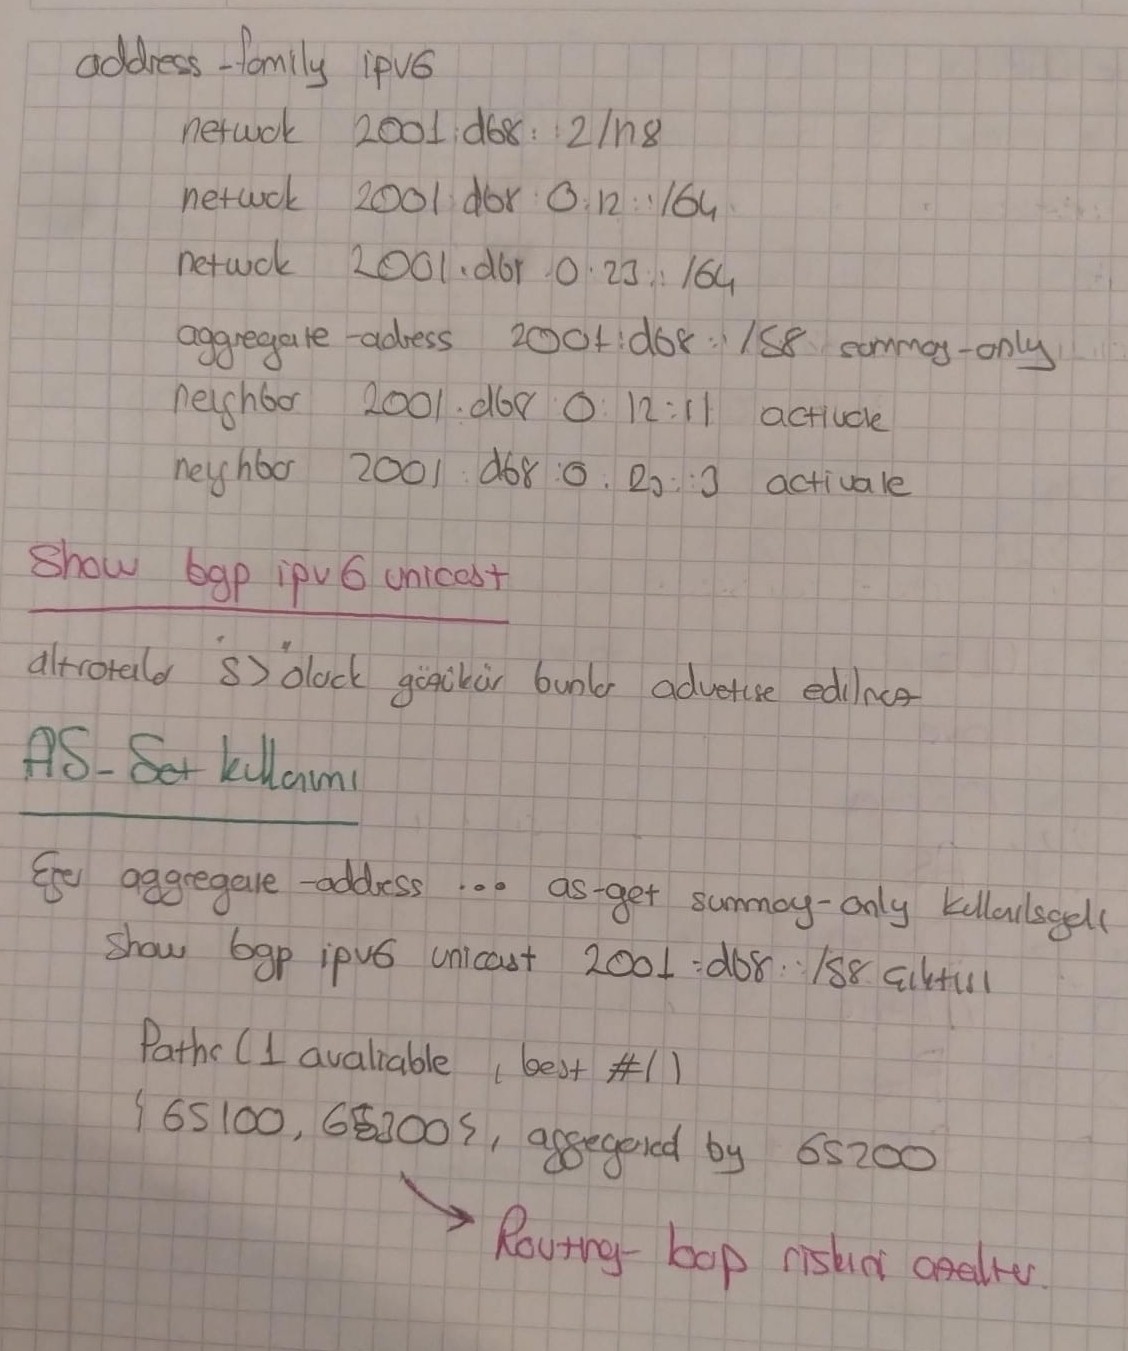 address-family ipv6
network 2001:db8::2/128
network 2001:db8:0:12::/64
network 2001:db8:0:23::/64
aggregate-adress 2001:db8::/58 summary-only
neighbor 2001:db8:0:12::1 activate
neighbor 2001:db8:0:23::3 activate
Show bgp ipv6 unicast
altrotalar "s>" olarak gözükür bunlar advertise edilmez
AS-Set kullanımı
Eğer aggregate-address ... as-get summary-only kullanılsaydı
show bgp ipv6 unicast 2001:db8::/58 çıktısı
Paths (1 avaliable, best #1)
{65100, 65300}, aggregated by 65200
Routing-loop riskini azaltır.